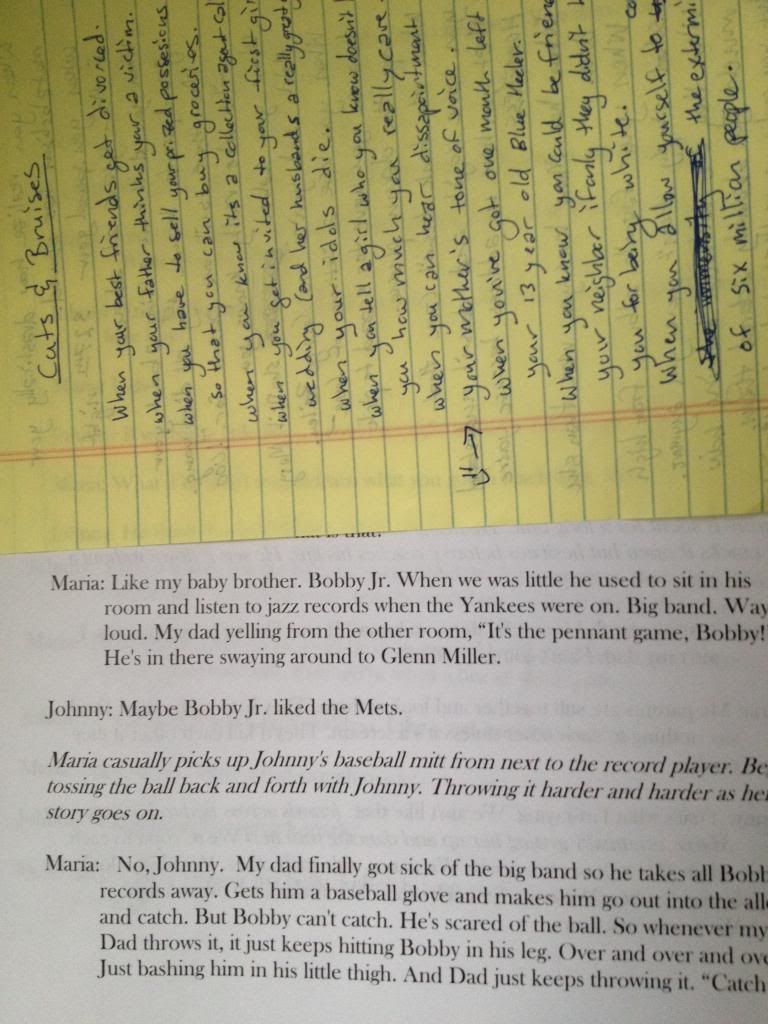 Cuts & Bruises
When your best friends get divorced.
when your father thinks your a victim.
when you have to sell your prized possesions
so that you can buy groceries.
when you know its a collection agent
when you get invited to your first
wedding (and her husbands a really great
when your idols die.
when you tell a girl who you know doesn't
you how much you really care.
when you can hear dissapointment
your mother's tone of voice.
when you've got one month left
your 13 year old Blue Heeler.
When you know you could be friend
your neighbor if only they didn't
you for being white.
When you allow yourself to
the extermi
of six million people.
Maria: Like my baby brother. Bobby Jr. When we was little he used to sit in his
room and listen to jazz records when the Yankees were on. Big band. Way
loud. My dad yelling from the other room, “It's the pennant game, Bobby!”
He's in there swaying around to Glenn Miller.
Johnny: Maybe Bobby Jr. liked the Mets.
Maria casually picks up Johnny's baseball mitt from next to the record player. Be
tossing the ball back and forth with Johnny. Throwing it harder and harder as he
story goes on.
Maria: No, Johnny. My dad finally got sick of the big band so he takes all Bobb
records away. Gets him a baseball glove and makes him go out into the all
and catch. But Bobby can't catch. He's scared of the ball. So whenever my
Dad throws it, it just keeps hitting Bobby in his leg. Over and over and ove
Just bashing him in his little thigh. And Dad just keeps throwing it. “Catch